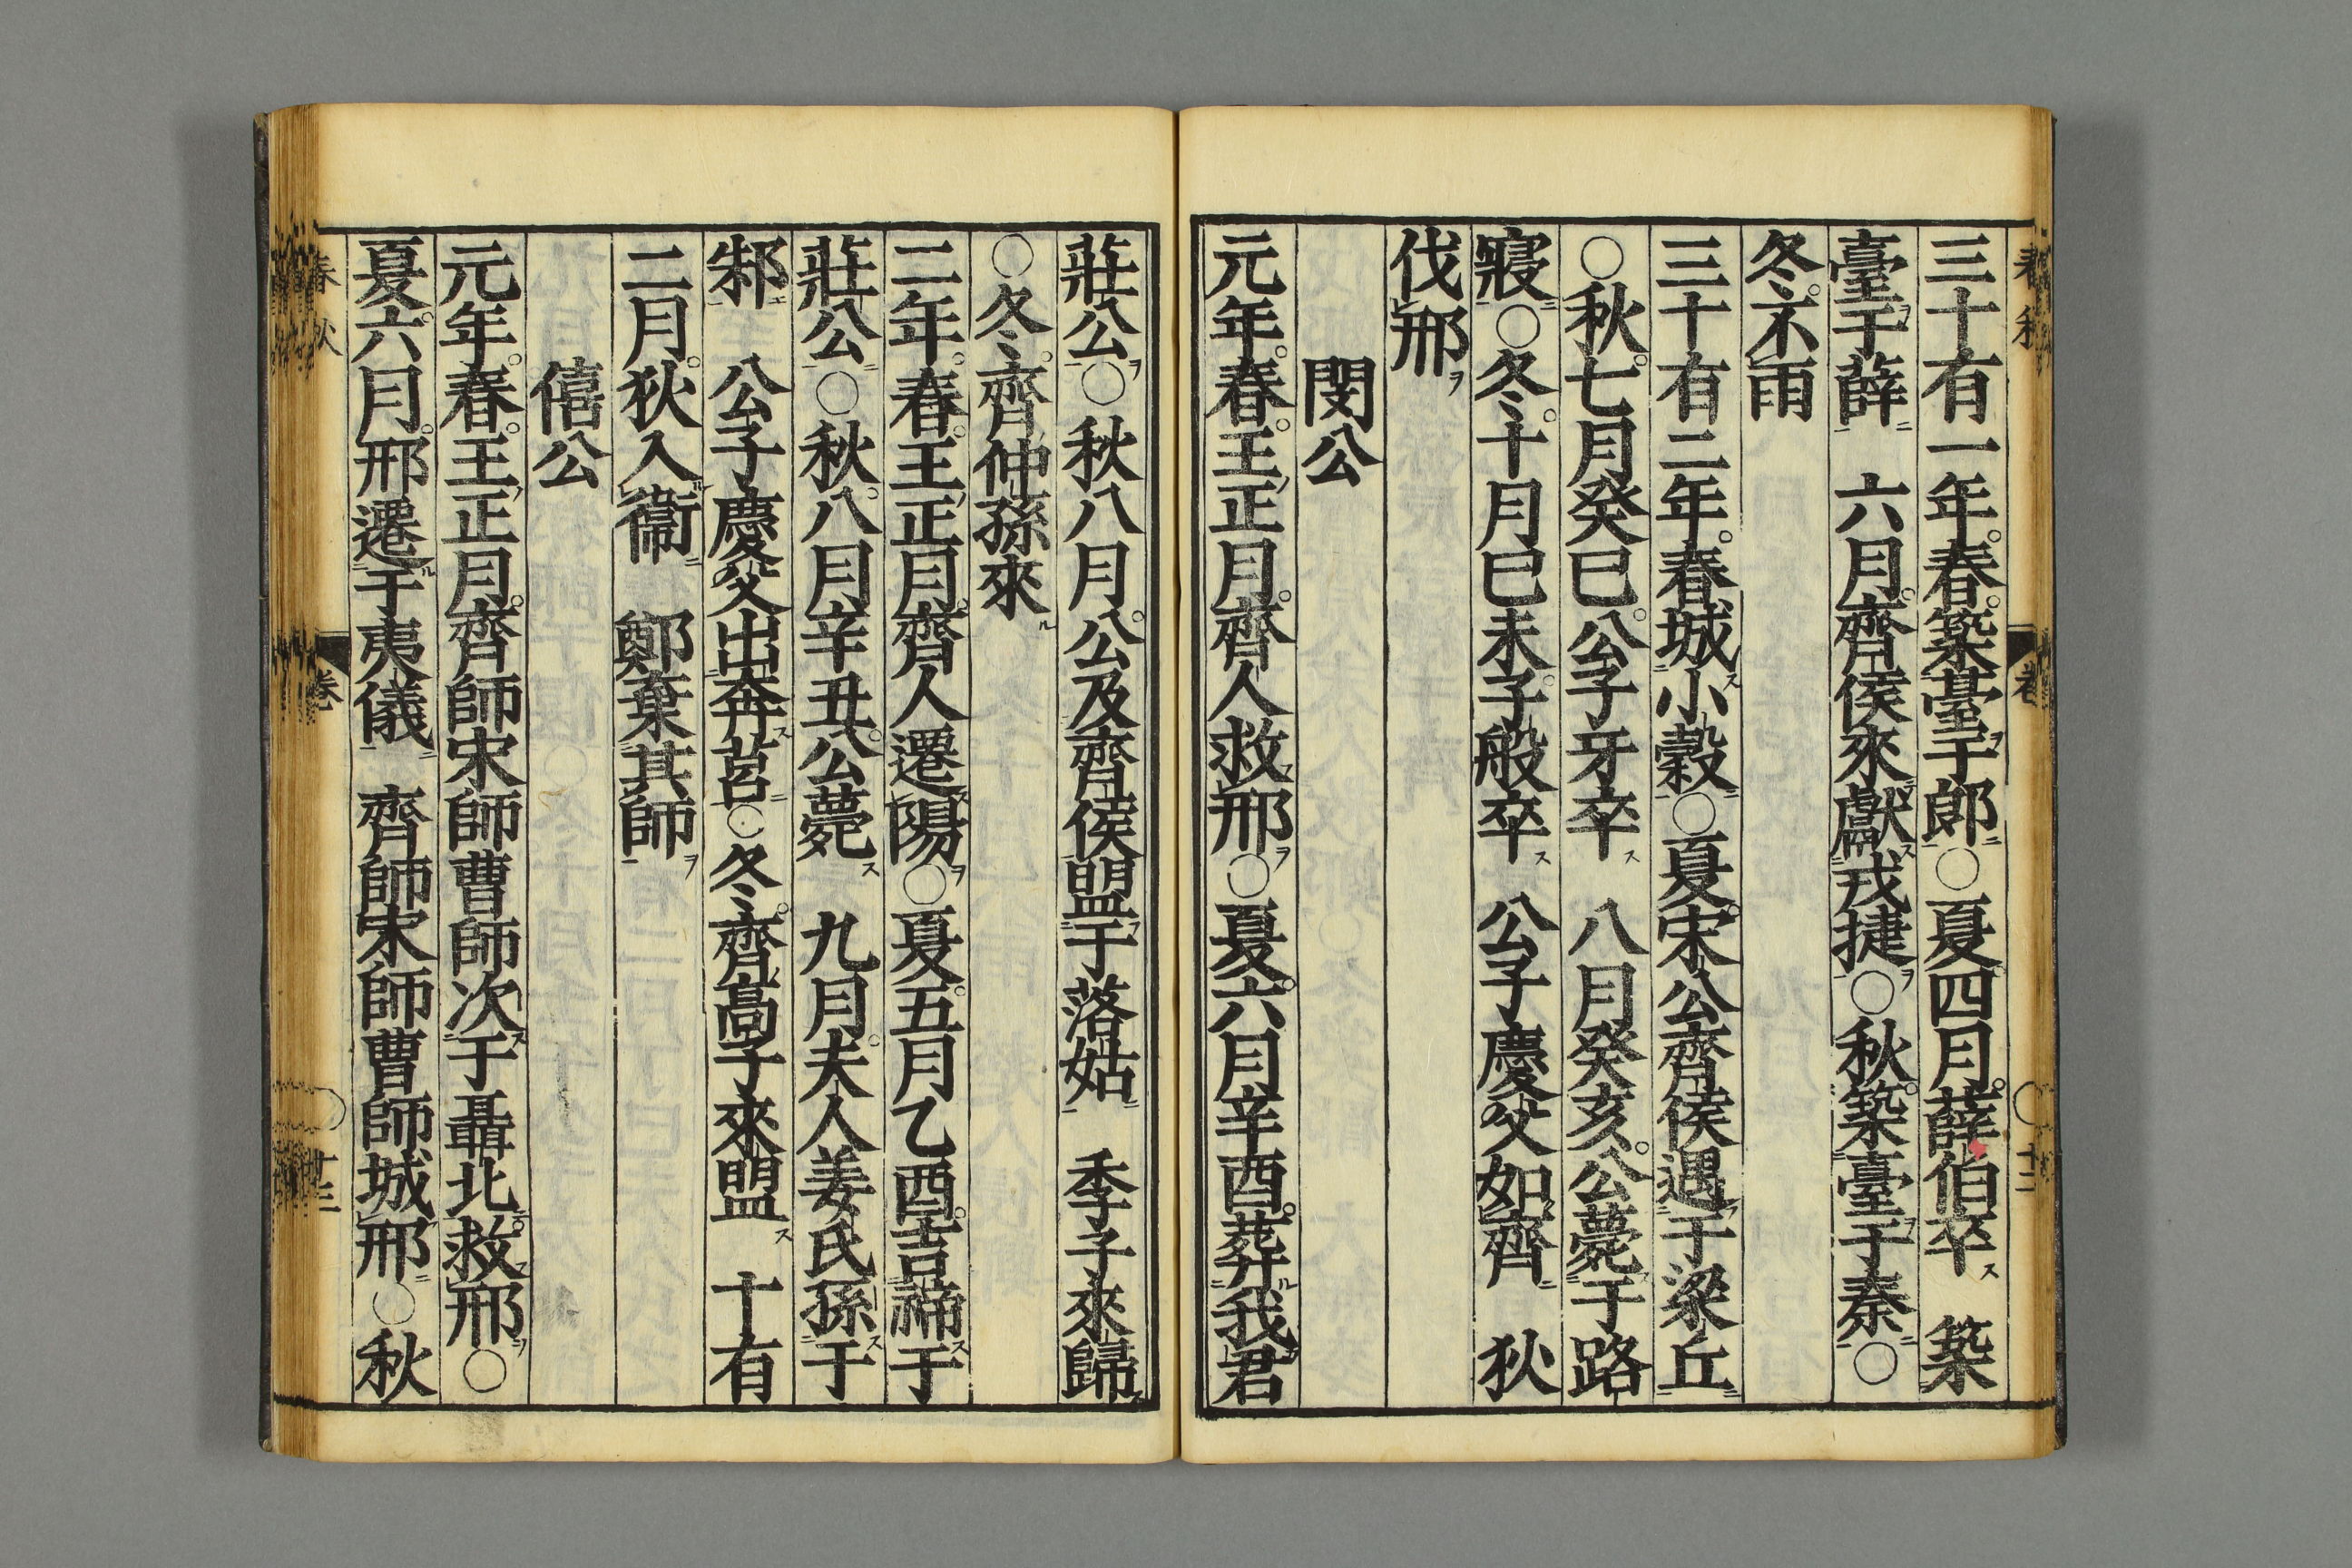 三十有一年春築臺于郎○夏四月薛伯卒ス 築
臺ヲ于薛ニ 六月齊侯來獻ス戎捷ヲ○秋築臺ヲ于秦ニ○
冬不雨
三十有二年春城ス小穀ニ○夏宋公齊侯遇フ于梁丘ニ
○秋七月癸巳公子牙卒ス 八月癸亥公薨于路
寢ニ○冬十月巳未子般卒ス 公子慶父如齊ニ 狄
伐邢ヲ
閔公
元年春王正月齊人救邢ヲ○夏六月辛酉葬ル我君
莊公ヲ○秋八月公及齊侯盟于落姑ニ 季子來歸
○冬齊仲孫來ル
二年春王正月齊人遷陽ヲ○夏五月乙酉吉禘ス于
莊公ニ○秋八月辛丑公薨ス 九月夫人姜氏孫ス于
邾ニ 公子慶父出奔ス莒ニ○冬齊高子來盟ス 十有
二月狄入衞ニ 鄭棄其師ヲ
僖公
元年春王正月齊師宋師曹師次ス于聶北ニ救邢ヲ○
夏六月邢遷ル于夷儀ニ 齊師宋師曹師城邢ニ○秋
春秋
卷
○
十三